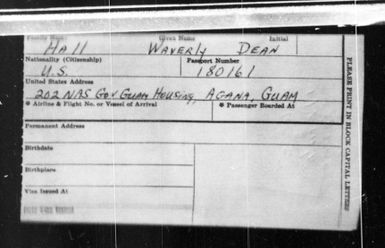 Family Name Given Name Initial
HALL WAVERLY DEAN
Nationality (Citizenship) Passport Number
U.S. 180161
United States Address
202 NAS GOV GUAM HOUSING, AGANA, GUAM
Airline & Flight No. or Vessel of Arrival Passenger Boarded At
Permanent Address
Birthdate
Birthplace
Visa Issued At
PLEASE PRINT IN BLOCK CAPITAL LETTERS